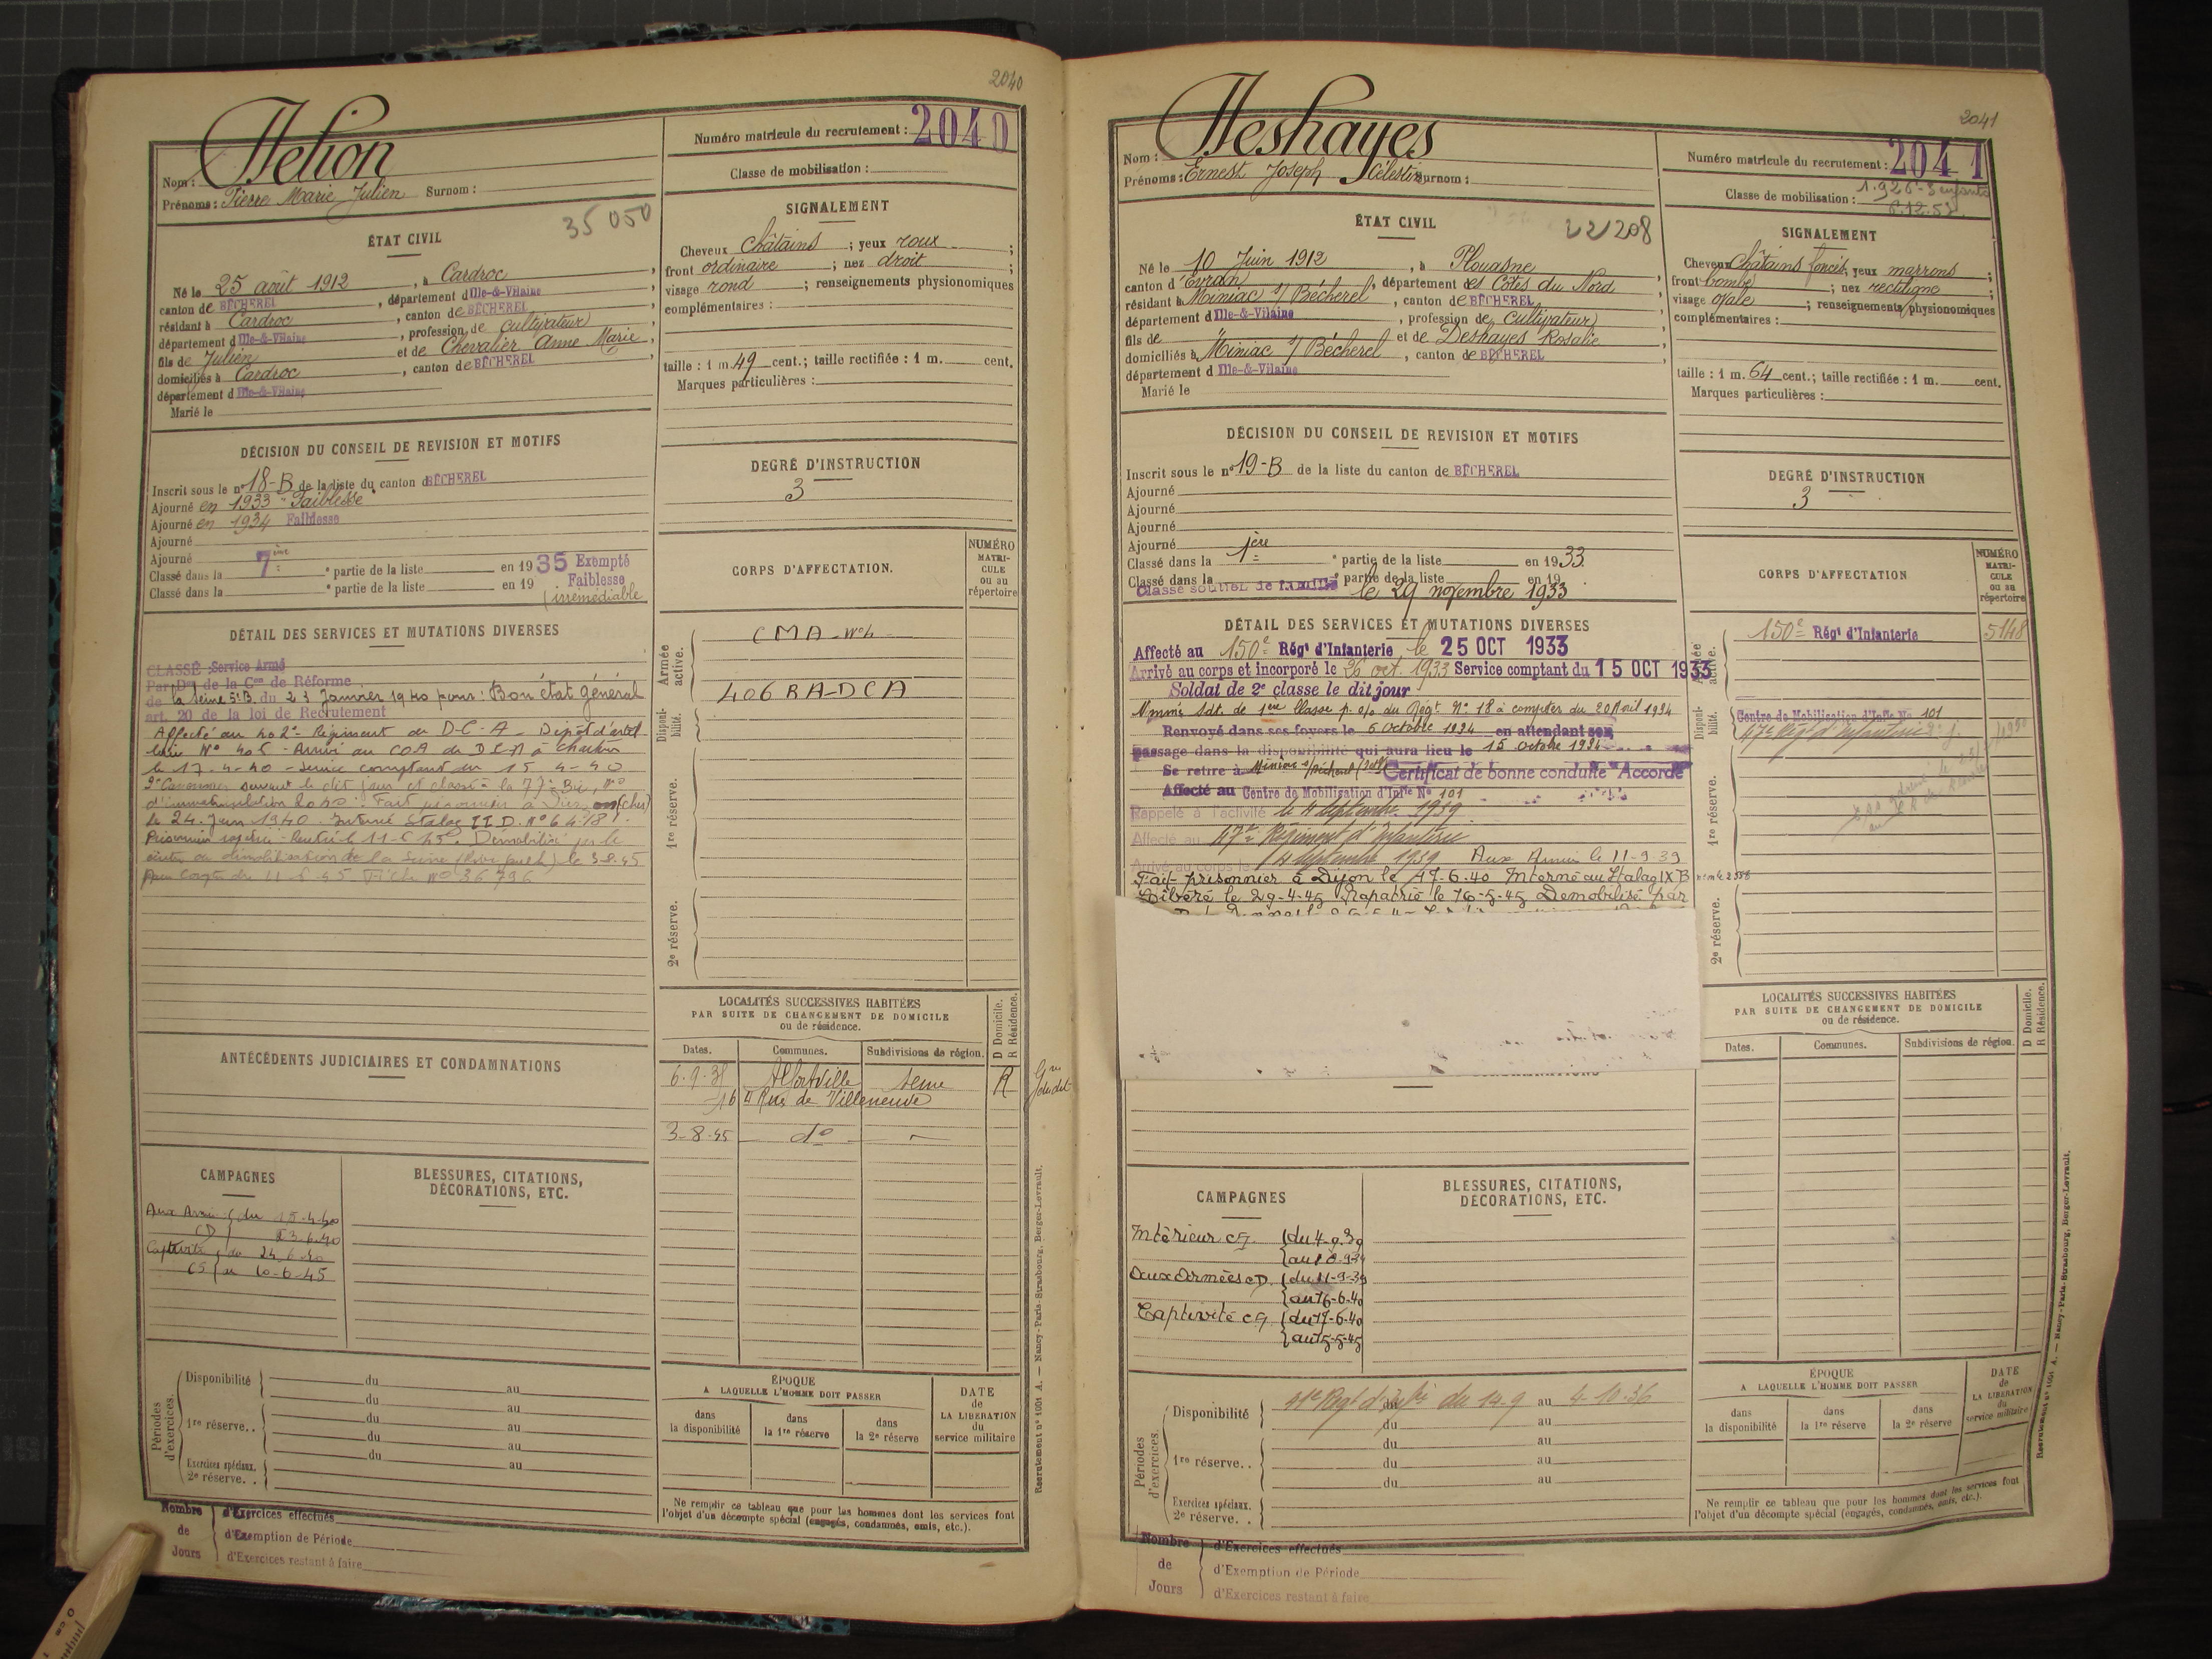 2040
Numéro matricule du recrutement : 2040
Nom : Delion
Prénoms : Pierre Marie Julien Surnom :
Classe de mobilisation :
ÉTAT CIVIL
35 050
Né le 25 août 1912, à Cardroc,
canton de BÉCHEREL, département d Ille-&-Vilaine
résidant à Cardroc, canton de BÉCHEREL,
département d Ille-&-Vilaine, profession de cultivateur,
fils de Julien et de Chevalier Anne Marie,
domiciliés à Cardroc, canton de BÉCHEREL,
département d Ille-&-Vilaine
Marié le
SIGNALEMENT
Cheveux châtains ; yeux roux ;
front ordinaire ; nez droit ;
visage rond ; renseignements physionomiques
complémentaires :
taille : 1 m. 49 cent.; taille rectifiée : 1 m. cent.
Marques particulières :
DÉCISION DU CONSEIL DE REVISION ET MOTIFS
Inscrit sous le n° 18-B de la liste du canton d BÉCHEREL
Ajourné en 1933 "Faiblesse"
Ajourné en 1934 Faiblesse
Ajourné
Ajourné
Classé dans la 7ème partie de la liste en 1935 Exempté
Classé dans la partie de la liste en 19 Faiblesse
irrémédiable
DEGRÉ D'INSTRUCTION
3
DÉTAIL DES SERVICES ET MUTATIONS DIVERSES
CLASSÉ Service Armé
Par Don de la Con de Réforme
de la Seine 5°B du 23 Janvier 1940 pour : Bon état général
art. 20 de la loi de Recrutement
Affecté au 402e Régiment de D-C-A - Dépôt d'artil
lerie N° 405 -
le 17-4-40 - Service comptant du 15-4-40
suivant le dit jour et classé
d'immatriculation 2040 - Fait prisonnier à (cher)
le 24 Juin 1940. Interné Stalag II D. N° 6418
Démobilisé par le
centre de démobilisation de la Seine le 3-8-45
Fiche N° 36796
CORPS D'AFFECTATION.
NUMÉRO MATRICULE ou au répertoire
Armée active.
CMA
406 RA-DCA
Disponibilité.
1re réserve.
2e réserve.
LOCALITÉS SUCCESSIVES HABITÉES
PAR SUITE DE CHANGEMENT DE DOMICILE
ou de résidence.
D Domicile.
R Résidence.
Dates. Communes. Subdivisions de région.
Alfortville Seine R
Rue de Villeneuve
3-8-45 do
ANTÉCÉDENTS JUDICIAIRES ET CONDAMNATIONS
CAMPAGNES
Aux Armées du 15-4-40
CD 23-6-40
Captivité du 24-6-40
CS au 10-6-45
BLESSURES, CITATIONS,
DÉCORATIONS, ETC.
Périodes d'exercices.
Disponibilité du au
du au
1re réserve.. du au
du au
Exercices spéciaux. du au
2e réserve. .
ÉPOQUE
A LAQUELLE L'HOMME DOIT PASSER
dans la disponibilité
dans la 1re réserve
dans la 2e réserve
DATE de LA LIBERATION du service militaire
Ne remplir ce tableau que pour les hommes dont les services font
l'objet d'un décompte spécial (engagés, condamnés, omis, etc.).
Nombre de Jours
d'Exercices effectués
d'Exemption de Période
d'Exercices restant à faire
Recrutement n° 1001 A. — Nancy-Paris-Strasbourg, Berger-Levrault.
2041
Numéro matricule du recrutement : 2041
Nom : Deshayes
Prénoms : Ernest Joseph Célestin Surnom :
Classe de mobilisation : 1.926-3 enfants
8.12.53
ÉTAT CIVIL
22208
Né le 10 Juin 1912, à Plouasne,
canton d'Evran, département des Côtes du Nord
résidant à Miniac s/ Bécherel, canton de BÉCHEREL
département d Ille-&-Vilaine, profession de cultivateur,
fils de et de Deshayes Rosalie
domiciliés à Miniac s/ Bécherel, canton de BÉCHEREL,
département d Ille-&-Vilaine
Marié le
SIGNALEMENT
Cheveux châtains foncés, yeux marrons ;
front bombé ; nez rectiligne ;
visage ovale ; renseignements physionomiques
complémentaires :
taille : 1 m. 64 cent.; taille rectifiée : 1 m. cent.
Marques particulières :
DÉCISION DU CONSEIL DE REVISION ET MOTIFS
Inscrit sous le n° 19-B de la liste du canton de BÉCHEREL
Ajourné
Ajourné
Ajourné
Ajourné
Classé dans la 1ère partie de la liste en 1933
Classé dans la partie de la liste en 19
Classé soutien de famille le 29 novembre 1933
DEGRÉ D'INSTRUCTION
3
DÉTAIL DES SERVICES ET MUTATIONS DIVERSES
Affecté au 150e Régt d'Infanterie le 25 OCT 1933
Arrivé au corps et incorporé le 26 oct. 1933 Service comptant du 15 OCT 1933
Soldat de 2e classe le dit jour
Nommé Sdt. de 1ère Classe p. o/ du Régt N° 18 à compter du 20 Avril 1934
Renvoyé dans ses foyers le 6 Octobre 1934 en attendant son
passage dans la disponibilité qui aura lieu le 15 octobre 1934
Se retire à Miniac s/ Bécherel (I&V) Certificat de bonne conduite "Accordé"
Affecté au Centre de Mobilisation d'Infie N° 101
Rappelé à l'activité le 4 septembre 1939
Affecté au 47e Régiment d'Infanterie
Arrivé au corps le 4 septembre 1939 Aux Armées le 11-9-39
Fait prisonnier à Dijon le 17-6-40 Interné au Stalag IX B
Libéré le 29-4-45 Rapatrié le 16-5-45 Démobilisé par
CORPS D'AFFECTATION
NUMÉRO MATRICULE ou au répertoire
Armée active.
150e Régt d'Infanterie 5148
Disponibilité.
Centre de Mobilisation d'Infie No 101
47e Régt d'Infanterie
1re réserve.
2e réserve.
LOCALITÉS SUCCESSIVES HABITÉES
PAR SUITE DE CHANGEMENT DE DOMICILE
ou de résidence.
D Domicile.
R Résidence.
Dates. Communes. Subdivisions de région.
CAMPAGNES
Intérieur CS du 4-9-39
au 10-9-39
Aux Armées CD. du 11-9-39
au 16-6-40
Captivité CS du 17-6-40
au 15-5-45
BLESSURES, CITATIONS,
DÉCORATIONS, ETC.
Périodes d'exercices.
Disponibilité 41e Rgt d'Infie du 14-9 au 4-10-36
du au
1re réserve.. du au
du au
Exercices spéciaux. du au
2e réserve. .
ÉPOQUE
A LAQUELLE L'HOMME DOIT PASSER
dans la disponibilité
dans la 1re réserve
dans la 2e réserve
DATE de LA LIBERATION du service militaire
Ne remplir ce tableau que pour les hommes dont les services font
l'objet d'un décompte spécial (engagés, condamnés, omis, etc.).
Nombre de Jours
d'Exercices effectués
d'Exemption de Période
d'Exercices restant à faire
Recrutement n° 1001 A. — Nancy-Paris-Strasbourg, Berger-Levrault.